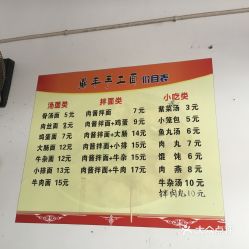 手工面 价目表
汤面类
骨汤面 5元
肉丝面 7元
鸡蛋面 7元
大肠面 12元
牛杂面 12元
小排面 13元
牛肉面 15元
拌面类
肉酱拌面 7元
肉酱拌面+鸡蛋 9元
肉酱拌面+大肠 14元
肉酱拌面+小排 15元
肉酱拌面+牛杂 15元
肉酱拌面+牛肉 15元
小吃类
紫菜汤 3元
小笼包 5元
鱼丸汤 6元
肉丸 7元
馄饨 6元
肉燕 8元
牛杂汤 10元
拌肉丸10元